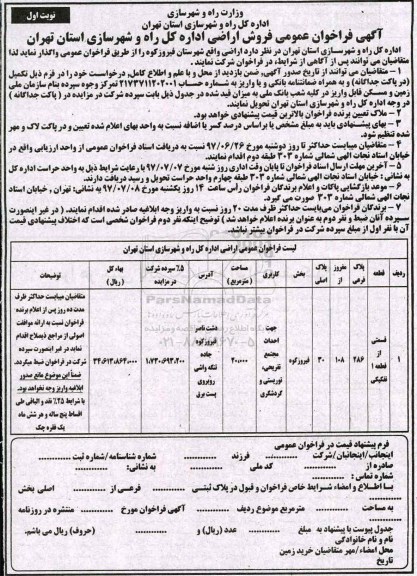 نوبت اول
وزارت راه و شهرسازی
اداره کل راه و شهرسازی استان تهران
آگهی فراخوان عمومی فروش اراضی اداره کل راه و شهرسازی استان تهران
اداره کل راه و شهرسازی استان تهران در نظر دارد اراضی واقع شهرستان فیروزکوه را از طریق فراخوان عمومی واگذار نماید لذا
متقاضیان می توانند پس از آگاهی از شرایط، در فراخوان شرکت نمایند.
۱ – متقاضیان می توانند از تاریخ صدور آگهی، ضمن بازدید از محل و با علم و اطلاع کامل، درخواست خود را در فرم ذیل تکمیل
(در پاکت جداگانه) و به همراه ضمانتنامه بانکی و یا واریز به شماره حساب ۲۱۷۳۷۱۱۲۰۲۰۰۱ تمرکز وجوه سپرده بنام سازمان ملی
زمین و مسکن قابل واریز در کلیه شعب بانک ملی به میزان قید شده در جدول ذیل بابت سپرده شرکت در مزایده در (پاکت جداگانه)
در وجه اداره کل راه و شهرسازی استان تهران تحویل نمایند.
۲ – ملاک تعیین برنده فراخوان بالاترین قیمت پیشنهادی خواهد بود.
۳ – بهای پیشنهادی باید به مبلغ مشخص یا براساس درصد کسر یا اضافه نسبت به واحد بهای اعلام شده تعیین و در پاکت لاک و مهر
شده تنظیم شود.
۴ – متقاضیان میبایست حداکثر تا روز دوشنبه مورخ ۹۷/۰۶/۲۶ نسبت به دریافت اسناد فراخوان عمومی از واحد ارزیابی واقع در
خیابان استاد نجات الهی شمالی شماره ۳۰۳ طبقه دوم اقدام نمایند.
۵ – آخرین مهلت ارسال اسناد فراخوان تا پایان وقت اداری روز شنبه مورخ ۹۷/۰۷/۰۷ با رعایت شرایط ذیل به واحد حراست اداره کل
به نشانی: خیابان استاد نجات الهی شمالی شماره ۳۰۳ طبقه چهارم واحد حراست تحویل و رسید دریافت دارند.
۶ – موعد بازگشایی پاکات و اعلام برندگان فراخوان رأس ساعت ۱۴ روز یکشنبه مورخ ۹۷/۰۷/۰۸ به نشانی: تهران، خیابان استاد
نجات الهی شمالی شماره ۳۰۳ صورت می گیرد.
۷ – برندگان فراخوان می‌بایست حداکثر ظرف مدت ۲۰ روز نسبت به واریز وجه ابلاغیه صادر شده اقدام نمایند. (در غیر اینصورت
سپرده آنان ضبط و نفر دوم به عنوان برنده اعلام خواهد شد) توضیح اینکه نفر دوم فراخوان شخصی است که اختلاف پیشنهادی قیمت
آن با نفر اول از مبلغ سپرده شرکت در فراخوان بیشتر نباشد.
لیست فراخوان عمومی اراضی اداره کل راه و شهرسازی استان تهران
ردیف | قطعه | پلاک فرعی | مفروز از | پلاک اصلی | بخش | کاربری | مساحت (مترمربع) | آدرس | ۵٪ سپرده شرکت در مزایده | بهاء کل (ریال) | توضیحات
۱ | قسمتی از قطعه ۱ تفکیکی | ۲۸۶ | ۱۰۸ | ۳۰ | فیروزکوه | جهت احداث مجتمع تفریحی، توریستی و گردشگری | ۲۰,۰۰۰ | دشت ناصر فیروزکوه جاده تنگه واشی روبروی پست برق | ۱,۷۳۰,۶۹۳,۲۰۰ | ۳۴,۶۱۳,۸۶۴,۰۰۰ | متقاضیان میبایست حداکثر ظرف مدت ده روز پس از اعلام برنده فراخوان نسبت به ارائه موافقت اصولی از مراجع ذیصلاح اقدام نماید در غیر اینصورت سپرده شرکت در فراخوان ضبط میگردد. ضمناً این موضوع مانع صدور ابلاغیه واریز وجه نخواهد بود. با شرایط ۲۵٪ نقد و الباقی طی اقساط پنج ساله و هر شش ماه یک فقره چک
فرم پیشنهاد قیمت در فراخوان عمومی
اینجانب/اینجانبان/شرکت فرزند شماره شناسنامه/شماره ثبت
صادره از کد ملی به نشانی:
شماره تماس:
با اطلاع و امضاء شرایط خاص فراخوان و قبول در پلاک ثبتی فرعی از اصلی بخش
به مساحت مترمربع موضوع ردیف آگهی فراخوان مورخ منتشره در روزنامه
جدول پیوست با پیشنهاد به مبلغ عدد (ریال) و (حروف) ریال می باشم.
نام و نام خانوادگی
محل امضاء/مهر متقاضیان خرید زمین
تاریخ
ParsNamadData